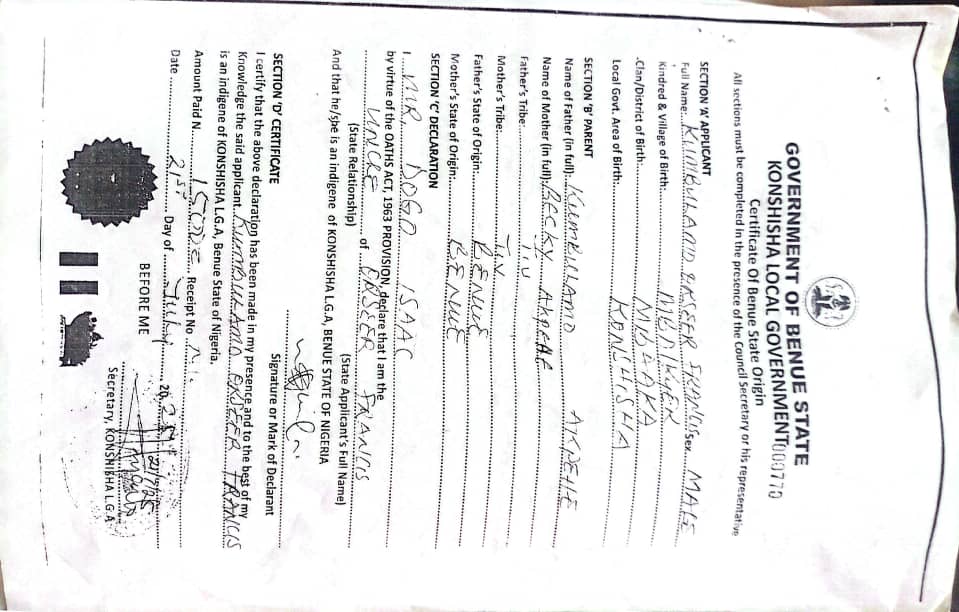 GOVERNMENT OF BENUE STATE
KONSHISHA LOCAL GOVERNMENT 000770
Certificate Of Benue State Origin
All sections must be completed in the presence of the Council Secretary or his representative
SECTION 'A' APPLICANT
Full Name: KUMBULAND ERSEER FRANCIS Sex MALE
Kindred & Village of Birth:
Clan/District of Birth:
Local Govt. Area of Birth: KONSHISHA
SECTION 'B' PARENT
Name of Father (in full):
Name of Mother (in full): BECKY
Father's Tribe: TIV
Mother's Tribe: TIV
Father's State of Origin: BENUE
Mother's State of Origin: BENUE
SECTION 'C' DECLARATION
I MR DOGO ISAAC
by virtue of the OATHS ACT, 1963 PROVISION, declare that I am the
UNCLE of ERSEER FRANCIS
(State Relationship) (State Applicant's Full Name)
And that he/she is an indigene of KONSHISHA L.G.A, BENUE STATE OF NIGERIA
Signature or Mark of Declarant
SECTION 'D' CERTIFICATE
I certify that the above declaration has been made in my presence and to the best of my
Knowledge the said applicant KUMBULAND ERSEER FRANCIS
is an indigene of KONSHISHA L.G.A, Benue State of Nigeria.
Amount Paid N Receipt No
Date 21st Day of July 20 25
BEFORE ME
21/7/25
Secretary, KONSHISHA L.G.A